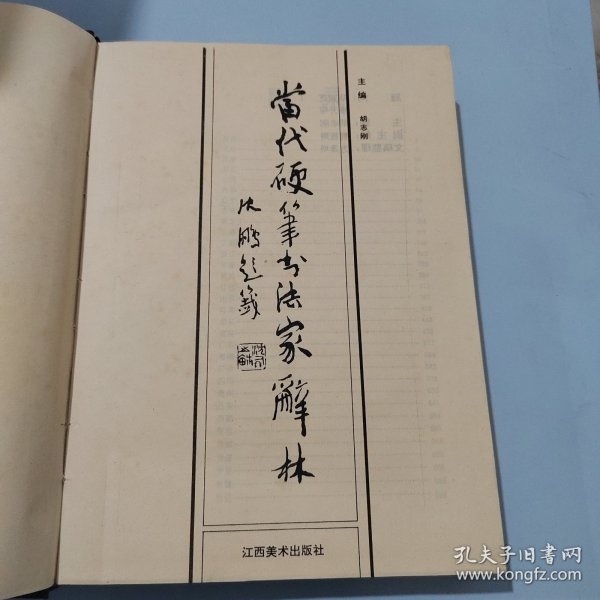 主编
胡志刚
當代硬筆书法家辭林
沈鹏题籤
江西美术出版社
孔夫子旧书网
www.kongfz.com